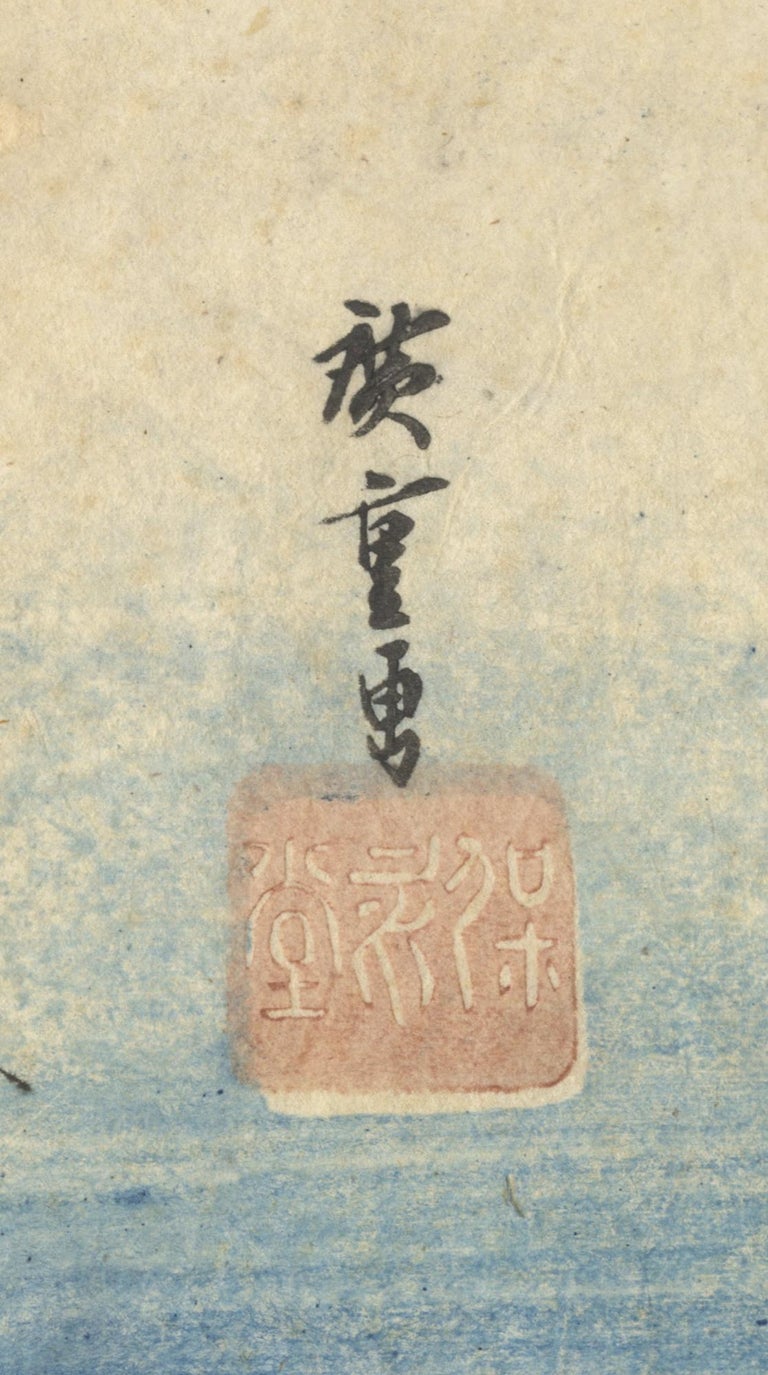 廣重畫
保永堂